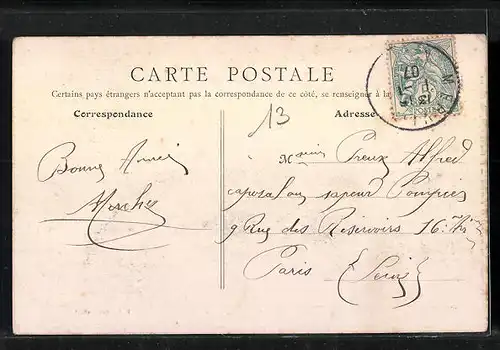 CARTE POSTALE
Certains pays étrangers n'acceptant pas la correspondance de ce côté, se renseigner à la
Correspondance
Adresse
13
Bonne
Monsieur Preux Alfred
caporal au sapeur Pompier
9 Rue des Reservoirs 16:
Paris (Seine)
07